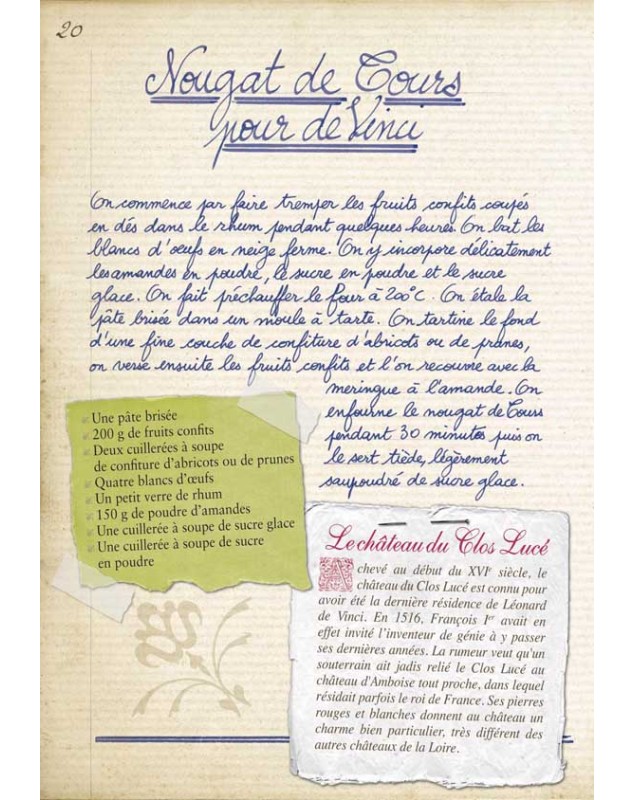 20
Nougat de Tours
pour de Vinci
On commence par faire tremper les fruits confits coupés
en dés dans le rhum pendant quelques heures. On bat les
blancs d'œufs en neige ferme. On y incorpore délicatement
les amandes en poudre, le sucre en poudre et le sucre
glace. On fait préchauffer le four à 200°C. On étale la
pâte brisée dans un moule à tarte. On tartine le fond
d'une fine couche de confiture d'abricots ou de prunes,
on verse ensuite les fruits confits et l'on recouvre avec la
meringue à l'amande. On
enfourne le nougat de Tours
pendant 30 minutes puis on
le sert tiède, légèrement
saupoudré de sucre glace.
Une pâte brisée
200 g de fruits confits
Deux cuillerées à soupe
de confiture d'abricots ou de prunes
Quatre blancs d'œufs
Un petit verre de rhum
150 g de poudre d'amandes
Une cuillerée à soupe de sucre glace
Une cuillerée à soupe de sucre
en poudre
Le château du Clos Lucé
Achevé au début du XVIe siècle, le
château du Clos Lucé est connu pour
avoir été la dernière résidence de Léonard
de Vinci. En 1516, François Ier avait en
effet invité l'inventeur de génie à y passer
ses dernières années. La rumeur veut qu'un
souterrain ait jadis relié le Clos Lucé au
château d'Amboise tout proche, dans lequel
résidait parfois le roi de France. Ses pierres
rouges et blanches donnent au château un
charme bien particulier, très différent des
autres châteaux de la Loire.